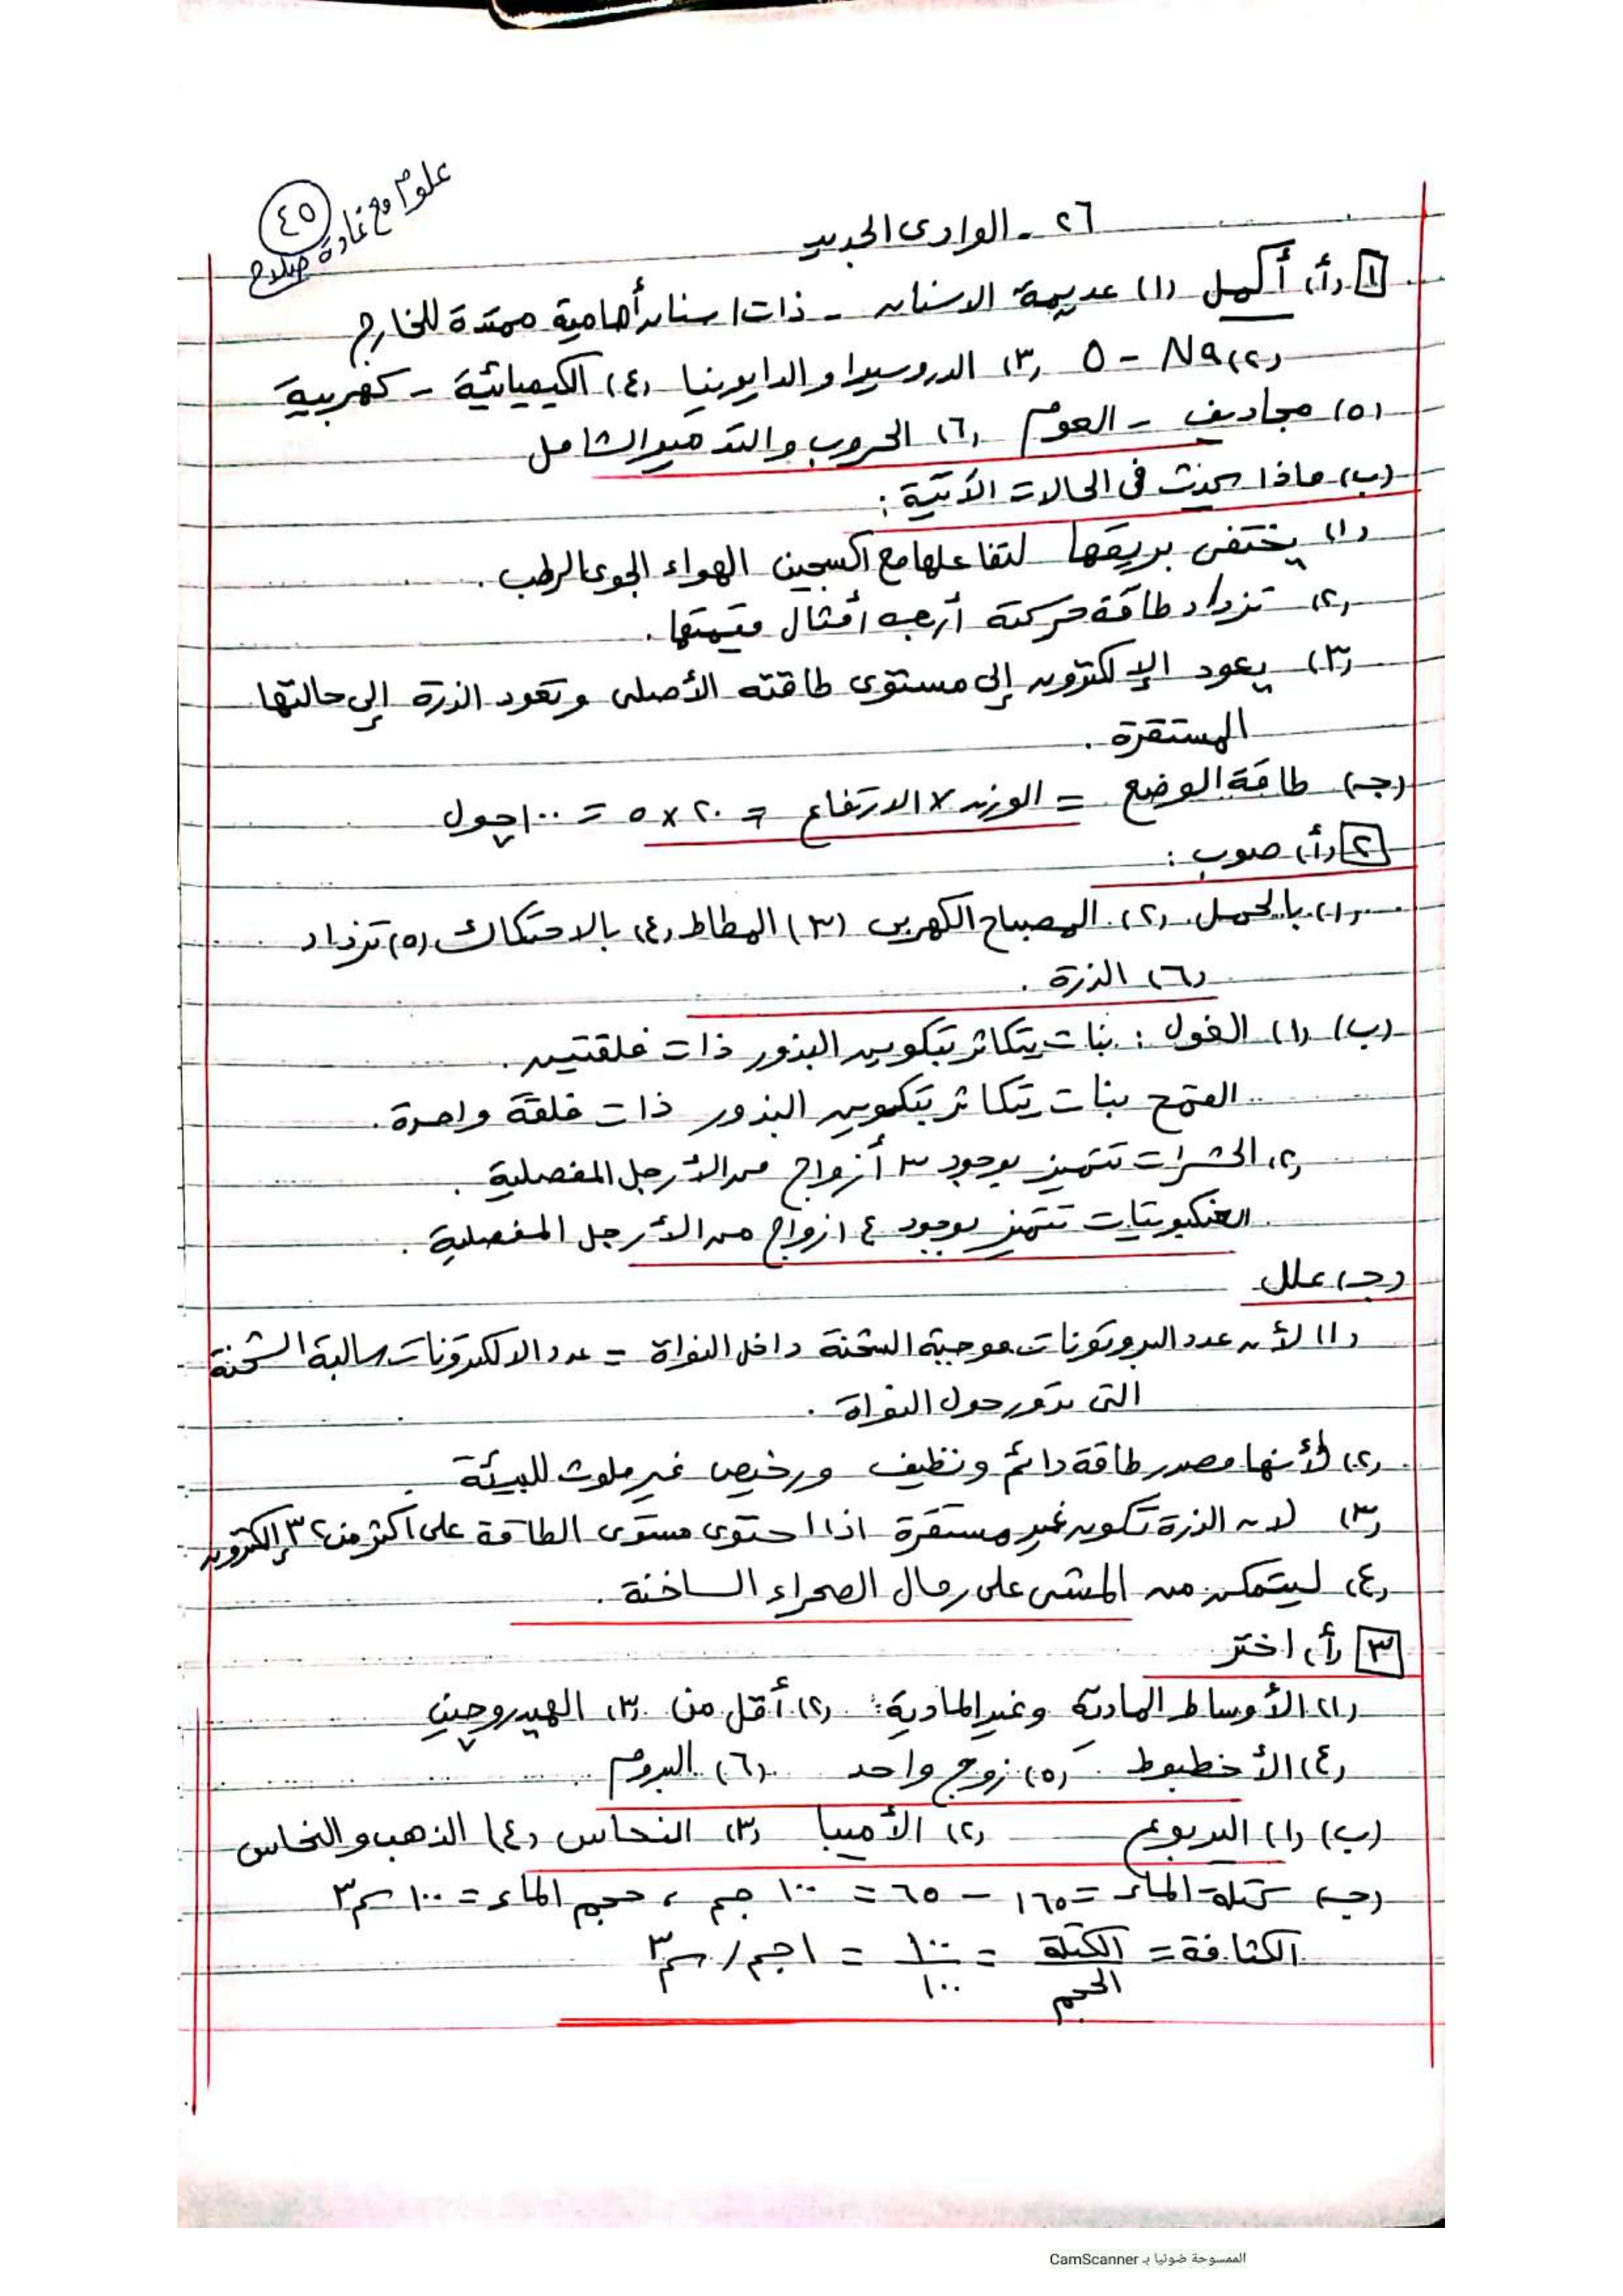 علوم مع غادة صلاح
٤٥
٢٦ - الوادى الجديد
١ (أ) أكمل (١) عديمة الاسنان - ذات اسنان أمامية ممتدة للخارج
(٢) Na - O (٣) الدروسيرا والدايونيا (٤) الكيميائية - كهربية
(٥) مجاديف - العوم (٦) الحروب والتدمير الشامل
(ب) ماذا يحدث فى الحالات الآتية :
(١) يختفى بريقها لتفاعلها مع اكسجين الهواء الجوى الرطب .
(٢) تزداد طاقة حركته أربعه أمثال قيمتها .
(٣) يعود الإلكترون إلى مستوى طاقته الأصلى وتعود الذرة إلى حالتها
المستقرة .
(جـ) طاقة الوضع = الوزن × الارتفاع = ٢٠ × ٥ = ١٠٠ چول
٢ (أ) صوب :
(١) بالحمل (٢) المصباح الكهربى (٣) المطاط (٤) بالاحتكاك (٥) تزداد
(٦) الذرة .
(ب) (١) الفول : نبات يتكاثر بتكوين البذور ذات فلقتين .
القمح نبات يتكاثر بتكوين البذور ذات فلقة واحدة .
(٢) الحشرات تتميز بوجود ٣ أزواج من الأرجل المفصلية .
العنكبوتيات تتميز بوجود ٤ ازواج من الأرجل المفصلية .
(جـ) علل
(١) لأن عدد البروتونات موجبة الشحنة داخل النواة = عدد الالكترونات سالبة الشحنة
التى تدور حول النواة .
(٢) لأنها مصدر طاقة دائم ونظيف ورخيص غير ملوث للبيئة
(٣) لان الذرة تكون غير مستقرة اذا احتوى مستوى الطاقة على اكثر من ٣٢ إلكترون
(٤) ليتمكن من المشى على رمال الصحراء الساخنة .
٣ (أ) اختر
(١) الأوساط المادية وغير المادية (٢) أقل من (٣) الهيدروچين
(٤) الأخطبوط (٥) زوج واحد (٦) البروم
(ب) (١) اليربوع (٢) الأميبا (٣) النحاس (٤) الذهب والنحاس
(جـ) كتلة الماء = ١٦٥ - ٦٥ = ١٠٠ جم ، حجم الماء = ١٠٠ سم٣
الكثافة = الكتلة / الحجم = ١٠٠ / ١٠٠ = ١ جم / سم٣
الممسوحة ضوئيا بـ CamScanner